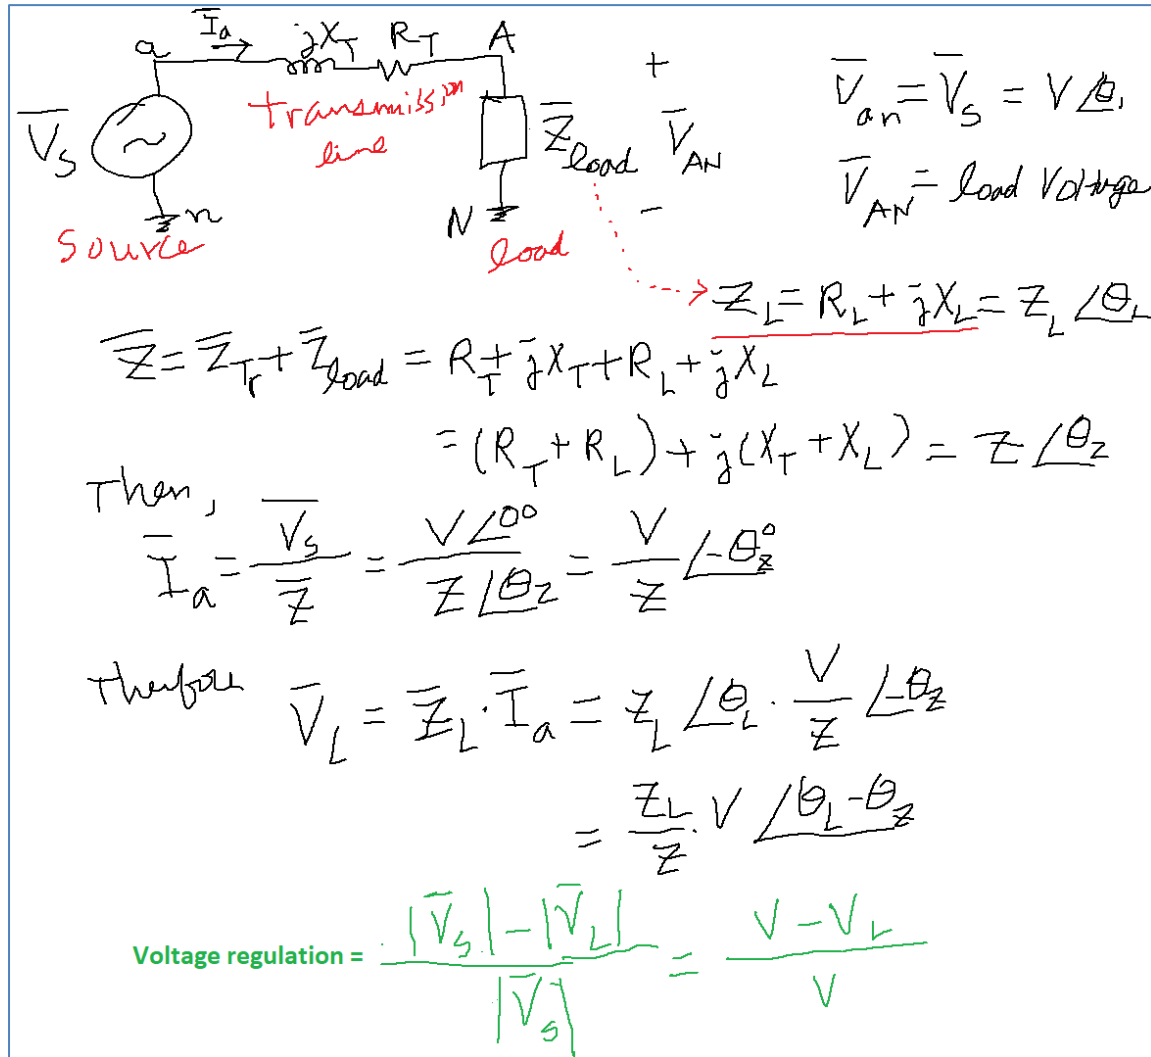 I̅a
a
jX_T
R_T
A
+
V̅an = V̅s = V∠θ₁
V̅s
transmission
line
Z̅load
V̅AN
V̅AN = load Voltage
n
N
-
Source
load
Z_L = R_L + jX_L = Z_L ∠θ_L
Z̅ = Z̅Tr + Z̅load = R_T + jX_T + R_L + jX_L
= (R_T + R_L) + j(X_T + X_L) = Z ∠θz
Then,
I̅a = V̅s / Z̅ = V∠0° / Z∠θz = V/Z ∠-θz°
Therfore V̅_L = Z̅_L · I̅a = Z_L ∠θ_L · V/Z ∠-θz
= Z_L/Z · V ∠θ_L - θz
Voltage regulation = |V̅s| - |V̅_L| / |V̅s| = V - V_L / V